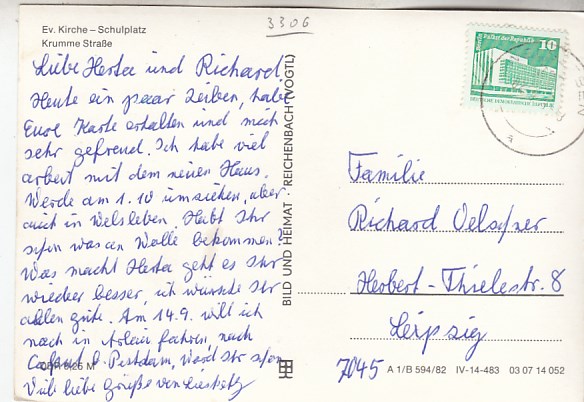 3306
Ev. Kirche – Schulplatz
Krumme Straße
Liebe Herta und Richard,
Heute ein paar Zeilen, habe
Eure Karte erhalten und mich
sehr gefreut. Ich habe viel
arbeit mit dem neuen Haus.
Werde am 1.10 umziehen, aber
auch in Welsleben. Habt Ihr
schon was an Wolle bekommen?
Was macht Herta geht es Ihr
wieder besser, ich wünsche Ihr
alles gute. Am 14.9. will ich
noch in fahren, nach
b. Potsdam, Ihr schon
Viele liebe Grüße von
BILD UND HEIMAT · REICHENBACH (VOGTL)
Palast der Republik
10
DEUTSCHE DEMOKRATISCHE REPUBLIK
Familie
Richard Oelsner
Herbert-Thielestr. 8
Leipzig
7045
A 1/B 594/82 IV-14-483 03 07 14 052